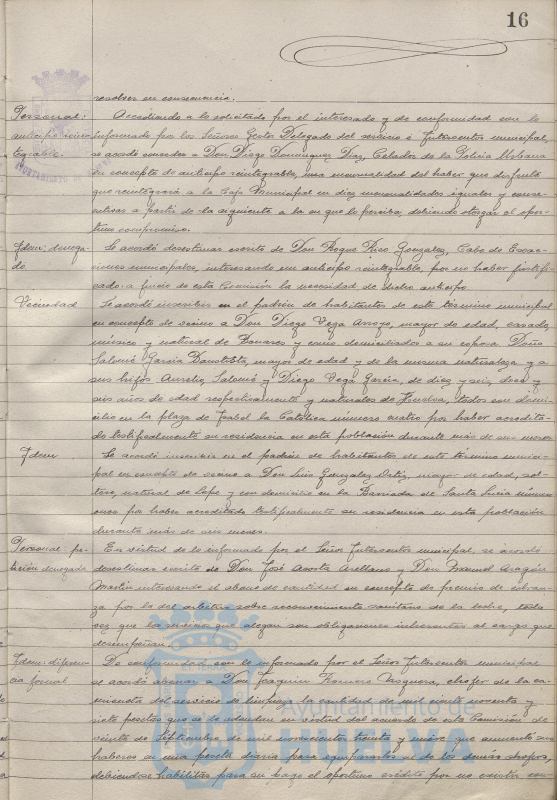 16
resolver en consecuencia.
Personal: Accediendo a lo solicitado por el interesado y de conformidad con lo
anticipo reintegrable informado por los Señores Gestor Delegado del servicio e Interventor municipal,
se acordó conceder a Don Diego Dominguez Diaz, Celador de la Policia Urbana
en concepto de anticipo reintegrable, una mensualidad del haber que disfruta
que reintegrará a la Caja Municipal en diez mensualidades iguales y conse-
cutivas a partir de la siguiente a la en que lo perciba, debiendo otorgar el opor-
tuno compromiso.
Idem: denega- Se acordó desestimar escrito de Don Roque Rico Gonzalez, Cabo de Exac-
do ciones municipales, interesando un anticipo reintegrable, por no haber justifi-
cado a juicio de esta Comisión la necesidad de dicho anticipo.
Vecindad Se acordó inscribir en el padrón de habitantes de este término municipal
en concepto de vecino a Don Diego Vega Arroyo, mayor de edad, casado
músico y natural de Bonares y como domiciliados a su esposa Doña
Salomé Garcia mayor de edad y de la misma naturaleza y a
sus hijos Aurelio, Salomé y Diego Vega Garcia, de diez y seis, doce y
seis años de edad respectivamente y naturales de Huelva, todos con domi-
cilio en la plaza de Isabel la Católica número cuatro por haber acredita-
do testificalmente su residencia en esta población durante más de seis meses.
Idem Se acordó inscribir en el padrón de habitantes de este término munici-
pal en concepto de vecino a Don Luis Gonzalez Ortiz, mayor de edad, sol-
tero, natural de Lepe y con domicilio en la Barriada de Santa Lucia número
once por haber acreditado testificalmente su residencia en esta población
durante más de seis meses.
Personal pe- En virtud de lo informado por el Señor Interventor municipal, se acordó
tición denegada desestimar escrito de Don José Acosta Arellano y Don Manuel Aragón
Martin interesando el abono de cantidad en concepto de premio de cobran-
za por la del arbitrio sobre reconocimiento sanitario de la leche, toda
vez que los servicios que alegan son obligaciones inherentes al cargo que
desempeñan.
Idem: diferen- De conformidad con lo informado por el Señor Interventor municipal
cia jornal se acordó abonar a Don Joaquin Romero Vasquez, chofer de la ca-
mioneta del servicio de limpieza la cantidad de noventa y
siete pesetas que se le adeudan en virtud del acuerdo de esta Comisión de
veinte de Septiembre de mil novecientos treinta y nueve que aumentó sus
haberes en una peseta diaria para equipararlos al de los demás choferes,
debiéndose habilitar para su pago el oportuno crédito por no existir con-
Ayuntamiento de
HUELVA